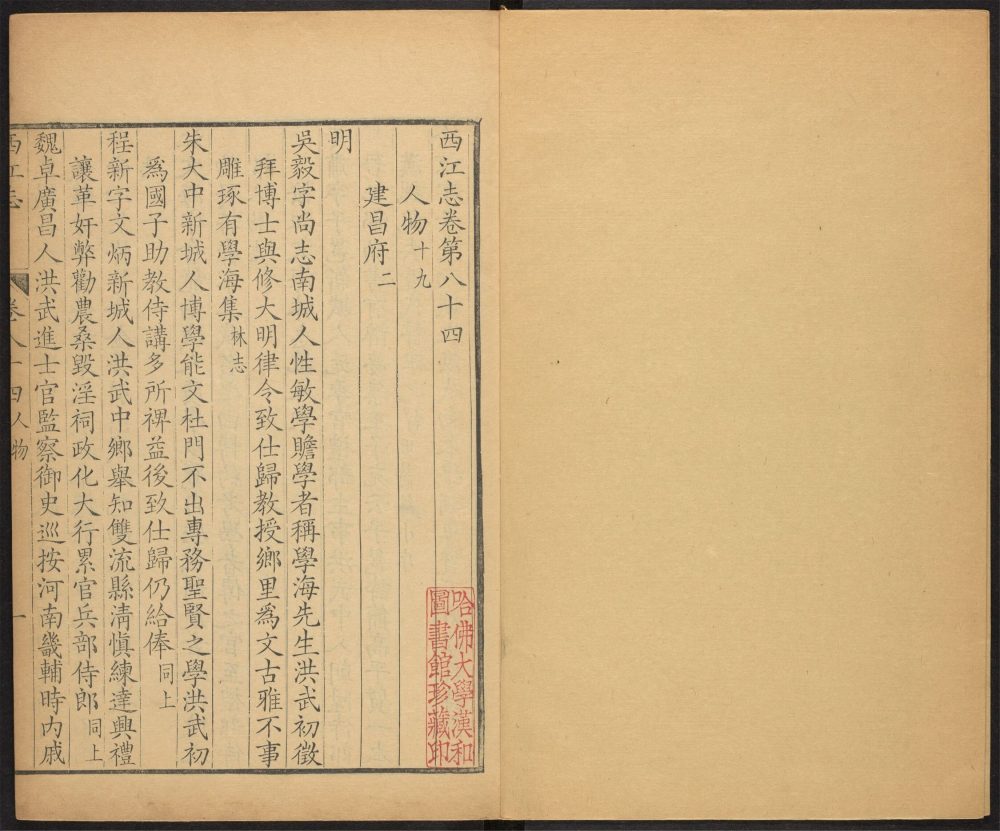 西江志卷第八十四
人物十九
建昌府二
明
吳毅字尚志南城人性敏學贍學者稱學海先生洪武初徵
拜博士與修大明律令致仕歸教授鄉里爲文古雅不事
雕琢有學海集林志
朱大中新城人博學能文杜門不出專務聖賢之學洪武初
爲國子助教侍講多所裨益後致仕歸仍給俸同上
程新字文炳新城人洪武中鄉舉知雙流縣淸愼練達興禮
讓革奸弊勸農桑毀淫祠政化大行累官兵部侍郎同上
魏卓廣昌人洪武進士官監察御史巡按河南畿輔時內戚
西江志 卷八十四人物 一
哈佛大學漢和
圖書館珍藏印